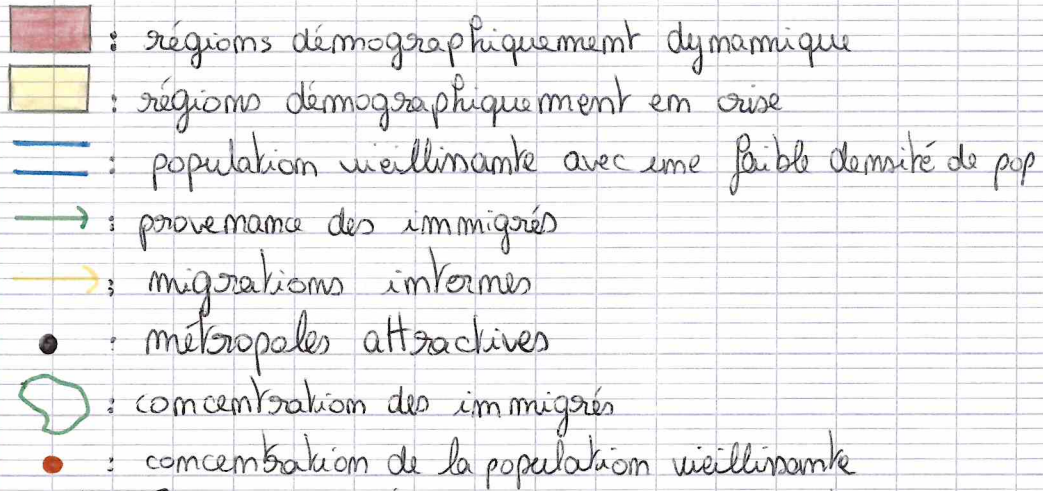 : régions démographiquement dynamique
: régions démographiquement en crise
: population vieillissante avec une faible densité de pop
: provenance des immigrés
: migrations internes
: métropoles attractives
: concentration des immigrés
: concentration de la population vieillissante